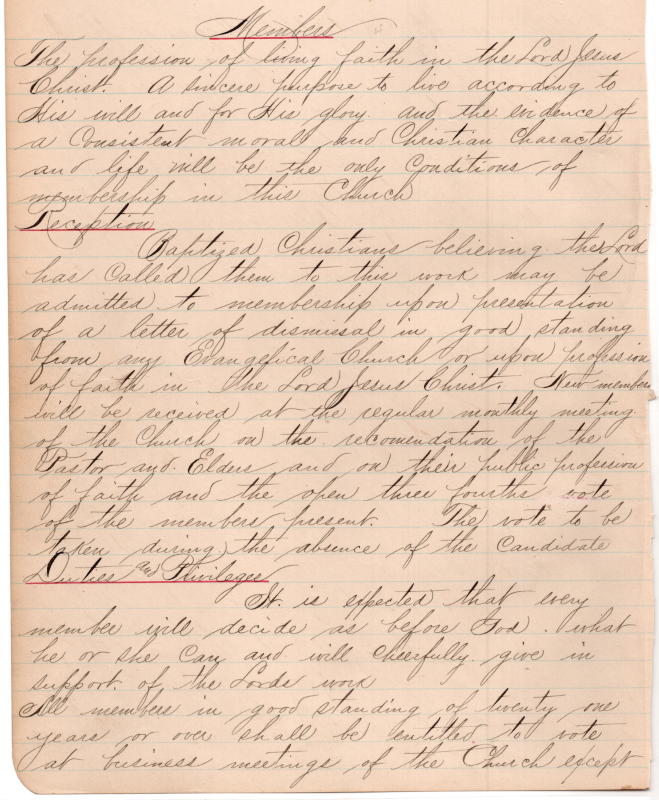 Members
The profession of living faith in the Lord Jesus
Christ. A sincere purpose to live according to
His will and for His glory. and the evidence of
a Consistent moral and Christian Character
and life will be the only Conditions of
membership in this Church
Reception
Baptized Christians believing the Lord
has Called them to this work may be
admitted to membership upon presentation
of a letter of dismissal in good standing
from any Evangelical Church or upon profession
of faith in the Lord Jesus Christ. New members
will be received at the regular monthly meeting
of the Church on the recomendation of the
Pastor and Elders and on their public profession
of faith and the open three fourths vote
of the members present. The vote to be
taken during the absence of the Candidate
Duties and Privileges
It is expected that every
member will decide as before God. what
he or she Can and will Cheerfully give in
support of the Lords work
All members in good standing of twenty one
years or over shall be entitled to vote
at business meetings of the Church except